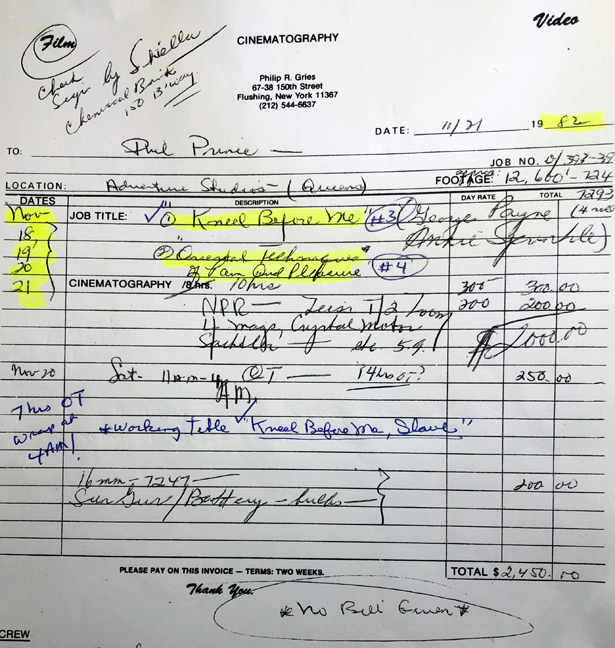 Video
Film
CINEMATOGRAPHY
check
Sign by Shiella
Chemical Bank
150 B'way
Philip R. Gries
67-38 150th Street
Flushing, New York 11367
(212) 544-6637
DATE: 11/21 1982
TO: Phil Prince
JOB NO.
FOOTAGE: 12,600'-724
7293
LOCATION: Adventure Studios - (Queens)
DATES DESCRIPTION DAY RATE TOTAL
Nov JOB TITLE: ✓ ① "Kneel Before Me" #3 (George Payne
18 Annie Sprinkle)
19 ② "Oriental Techniques
20 of Pain and Pleasure #4
21 CINEMATOGRAPHY 10 hrs 300 300.00
NPR - Zeiss 200 200.00
4 mags, Crystal Motor
Sachtler - etc 5.9. $2000.00
Nov 20 Sat - 11 AM - 4 AM OT - 14 hrs OT? 250.00
7 hrs OT
wrap at
4 AM!
*working title "Kneel Before Me, Slave"
16mm - 7247
Sun Gun/Battery - bulbs 200 00
PLEASE PAY ON THIS INVOICE — TERMS: TWO WEEKS. TOTAL $2,450.00
Thank You.
*No Bill Given*
CREW